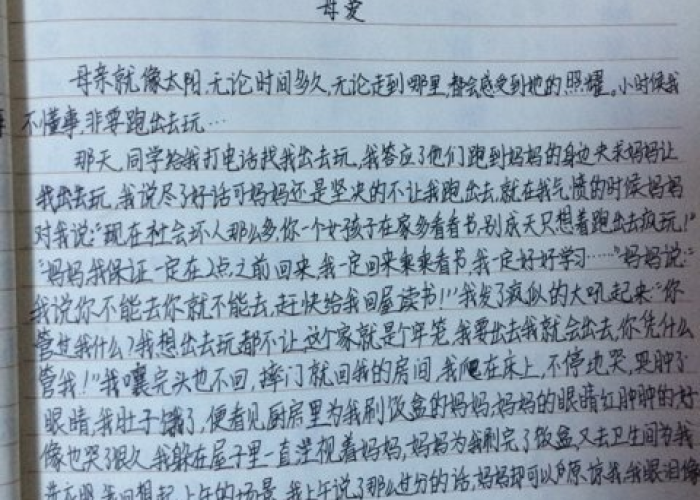 母爱
母亲就像太阳,无论时间多久,无论走到哪里,都会感受到她的照耀。小时候我
不懂事,非要跑出去玩…
那天,同学给我打电话找我出去玩,我答应了他们跑到妈妈的身边央求妈妈让
我出去玩,我说尽了好话可妈妈还是坚决的不让我跑出去,就在我气愤的时候妈妈
对我说:"现在社会坏人那么多,你一个女孩子在家多看看书,别成天只想着跑出去疯玩!"
"妈妈,我保证一定在2点之前回来,我一定回来乘乘看书,我一定好好学习……"妈妈说:"
我说你不能去你就不能去,赶快给我回屋读书!"我发了疯似的大吼起来:"你
管过我什么?我想出去玩都不让,这个家就是个牢笼,我要出去我就会出去,你凭什么
管我!"我嚷完头也不回,摔门就回我的房间,我爬在床上,不停地哭,哭肿了
眼睛,我肚子饿了,便看见厨房里为我刷饭盒的妈妈;妈妈的眼睛红肿肿的好
像也哭了很久,我躲在屋子里一直望视着妈妈,妈妈为我刷完了饭盒,又去卫生间为我
我回想起上午的场景,我上午说了那么过分的话,妈妈却可以原谅我,我眼泪像